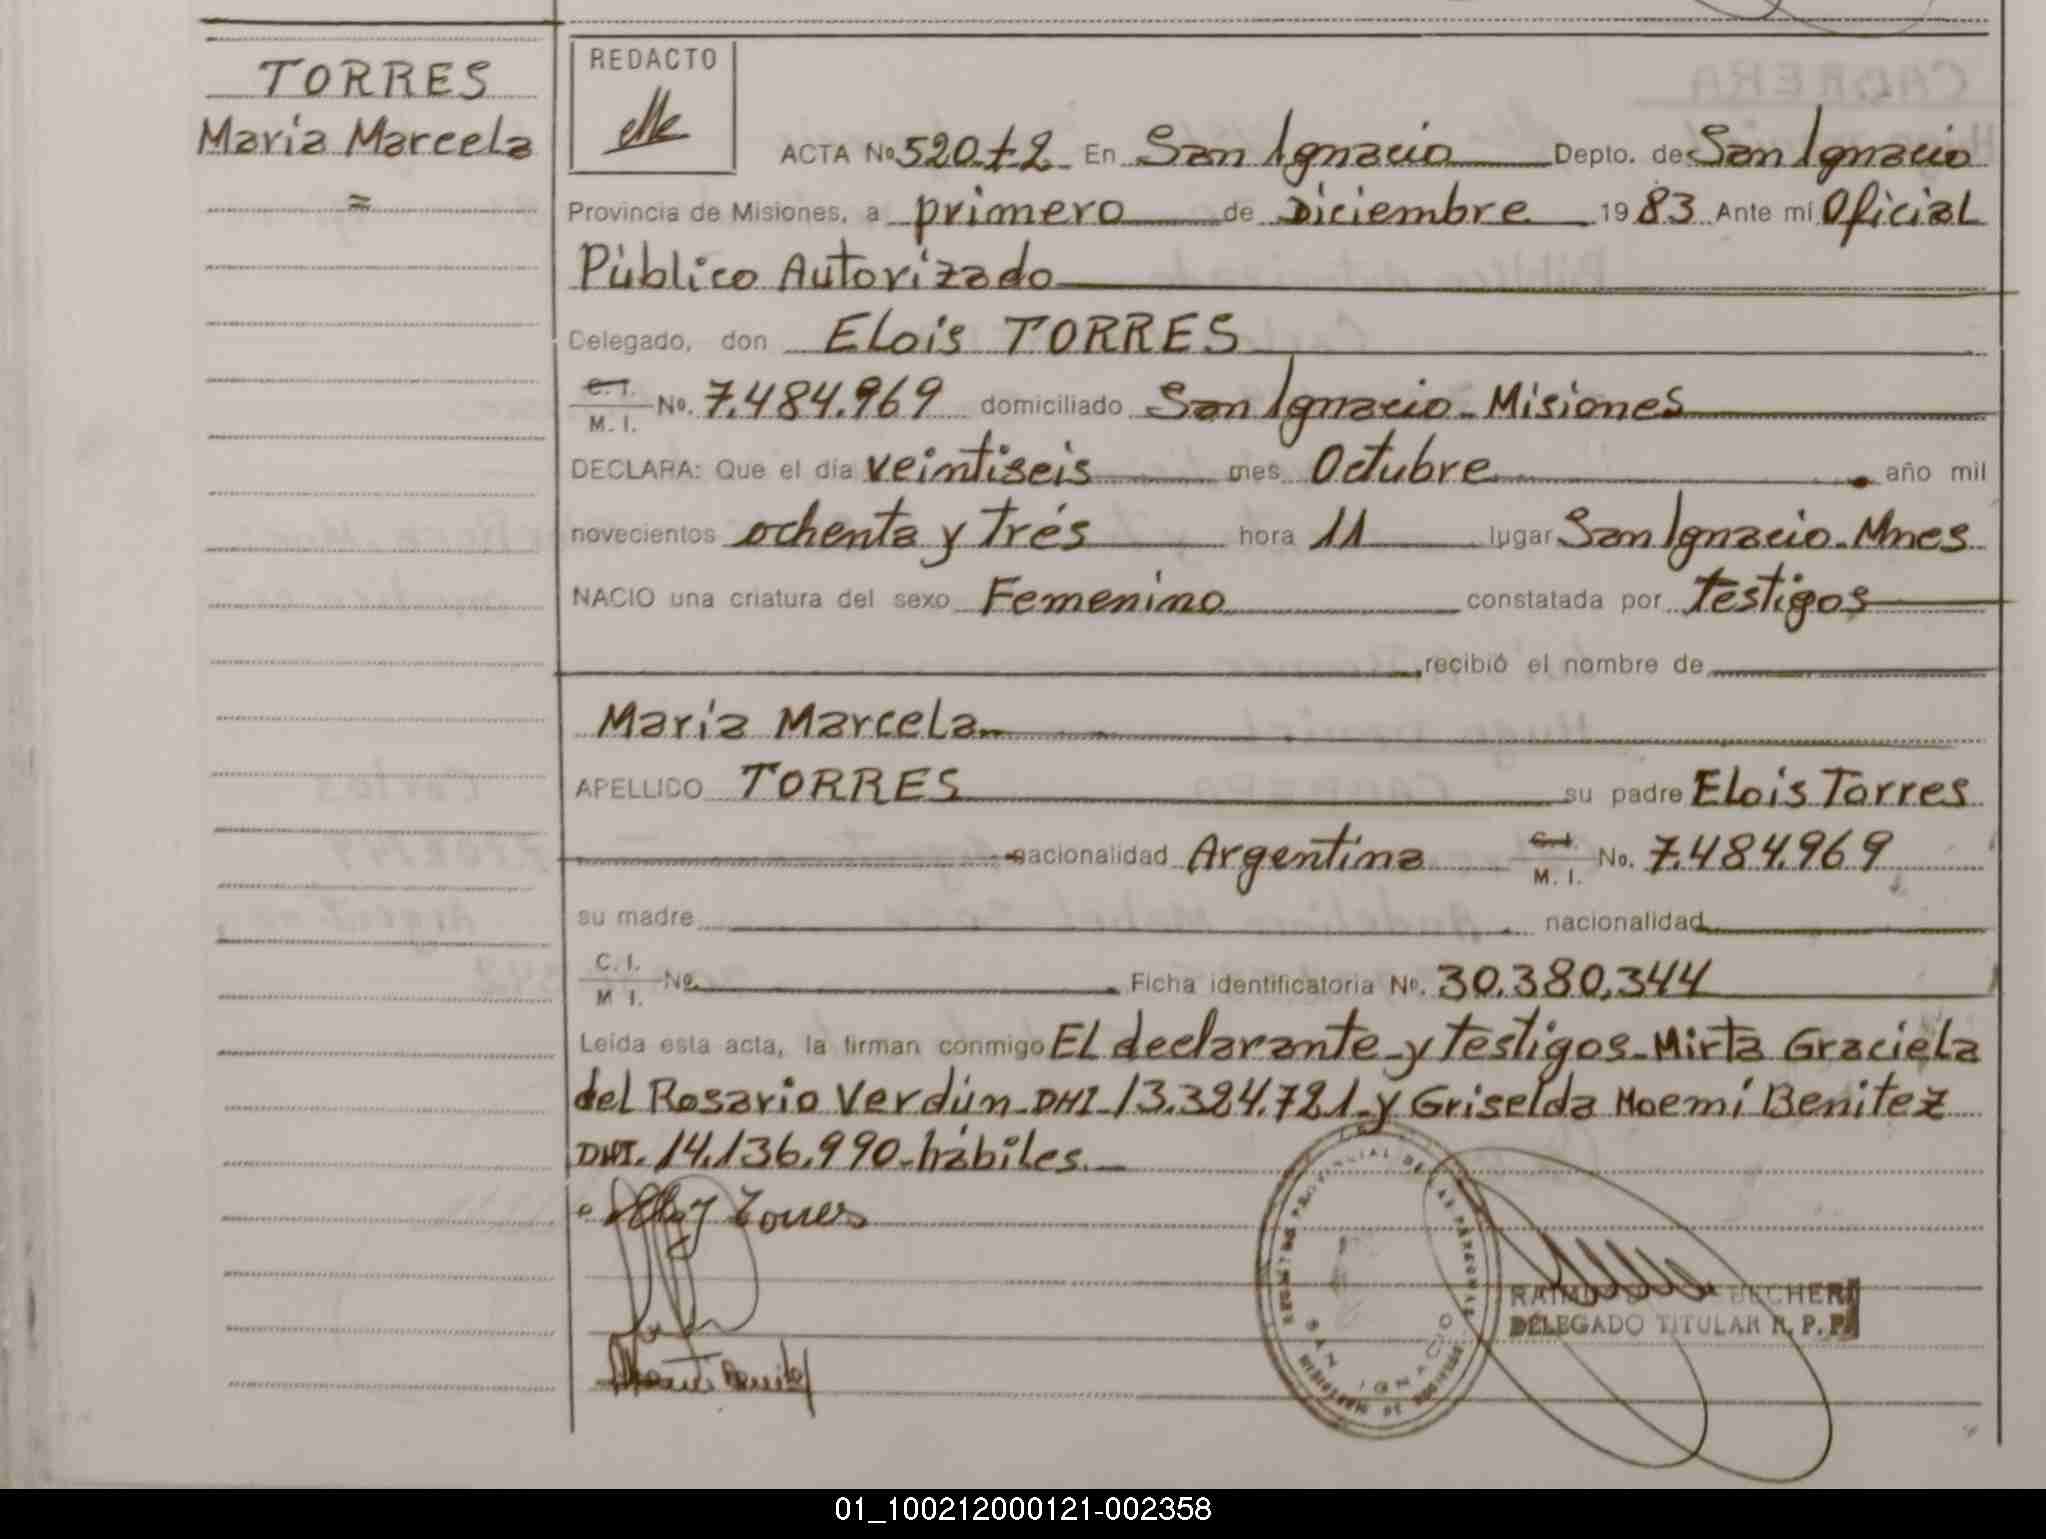 TORRES
María Marcela
=
REDACTO
ACTA Nº 520 t2 En San Ignacio Depto. de San Ignacio
Provincia de Misiones, a primero de Diciembre 1983 Ante mí Oficial
Público Autorizado
Delegado, don Elois TORRES
C. I.
M. I. Nº. 7.484.969 domiciliado San Ignacio - Misiones
DECLARA: Que el día veintiseis mes Octubre año mil
novecientos ochenta y trés hora 11 lugar San Ignacio - Mnes
NACIO una criatura del sexo Femenino constatada por testigos
recibió el nombre de
María Marcela
APELLIDO TORRES su padre Elois Torres
nacionalidad Argentina C. I. M. I. No. 7.484.969
su madre nacionalidad
C. I.
M I. Nº. Ficha identificatoria Nº. 30.380.344
Leída esta acta, la firman conmigo El declarante y testigos - Mirta Graciela
del Rosario Verdún - DNI - 13.324.721 - y Griselda Noemí Benitez
DNI. 14.136.990 - hábiles. -
Torres
SAN IGNACIO
DELEGADO TITULAR R. P. P.
01_100212000121-002358